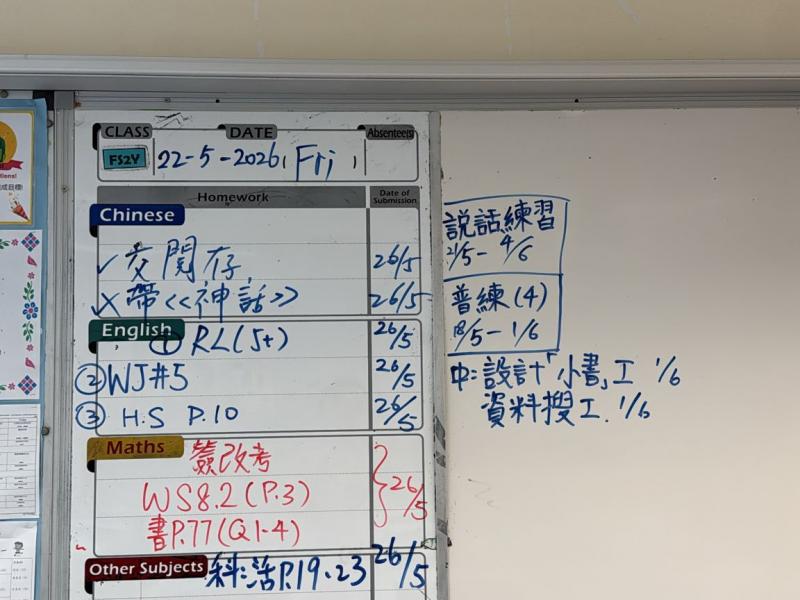 CLASS DATE Absentee(s)
FS2Y 22-5-2026(Fri)
Homework Date of Submission
Chinese
✓ 交閱存 26/5
✗ 帶<<神話>> 26/5
English
① RL(5+) 26/5
② WJ#5 26/5
③ H.S P.10 26/5
Maths
簽改考
WS8.2(P.3) 26/5
書P.77(Q1-4)
Other Subjects 科:活P.19.23 26/5
說話練習
2/5- 4/6
普練(4)
18/5-1/6
中:設計「小書」工 1/6
資料搜工. 1/6